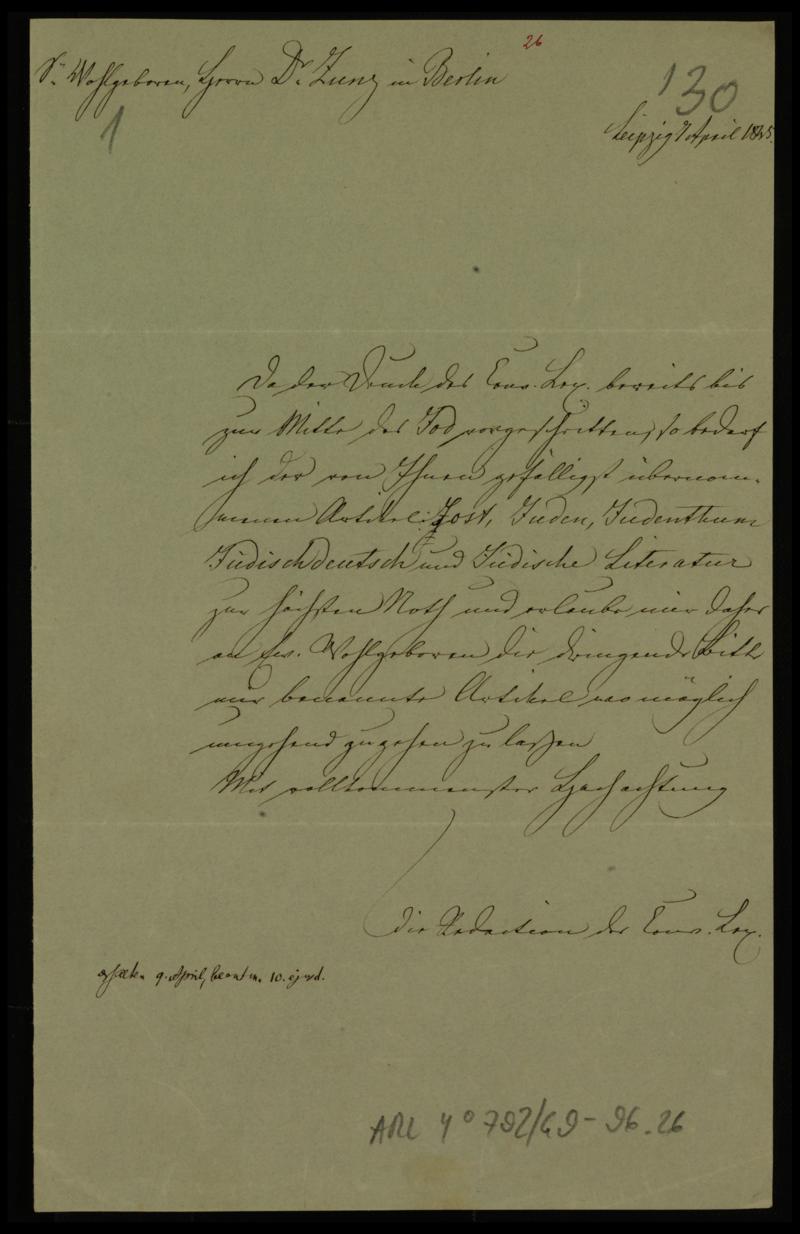 26
Sr. Wohlgeboren, Herrn Dr. Zunz in Berlin
130
1
Leipzig 7 April 1845.
Da der Druck des Conv. Lex. bereits bis
zur Mitte des J vorgeschritten, so bedarf
ich der von Ihnen gefälligst übernom-
menen Artikel: Jost, Juden, Judenthum
Jüdischdeutsch und Jüdische Literatur
zur höchsten Noth und erlaube mir daher
an Ew. Wohlgeboren die dringende Bitte
mir benannte Artikel wo möglich
umgehend zugehen zu lassen
Mit vollkommenster Hochachtung
die Redaction des Conv. Lex.
erhalten 9. April, beantw. 10. ejusd.
ARC 4° 792/G9-96.26